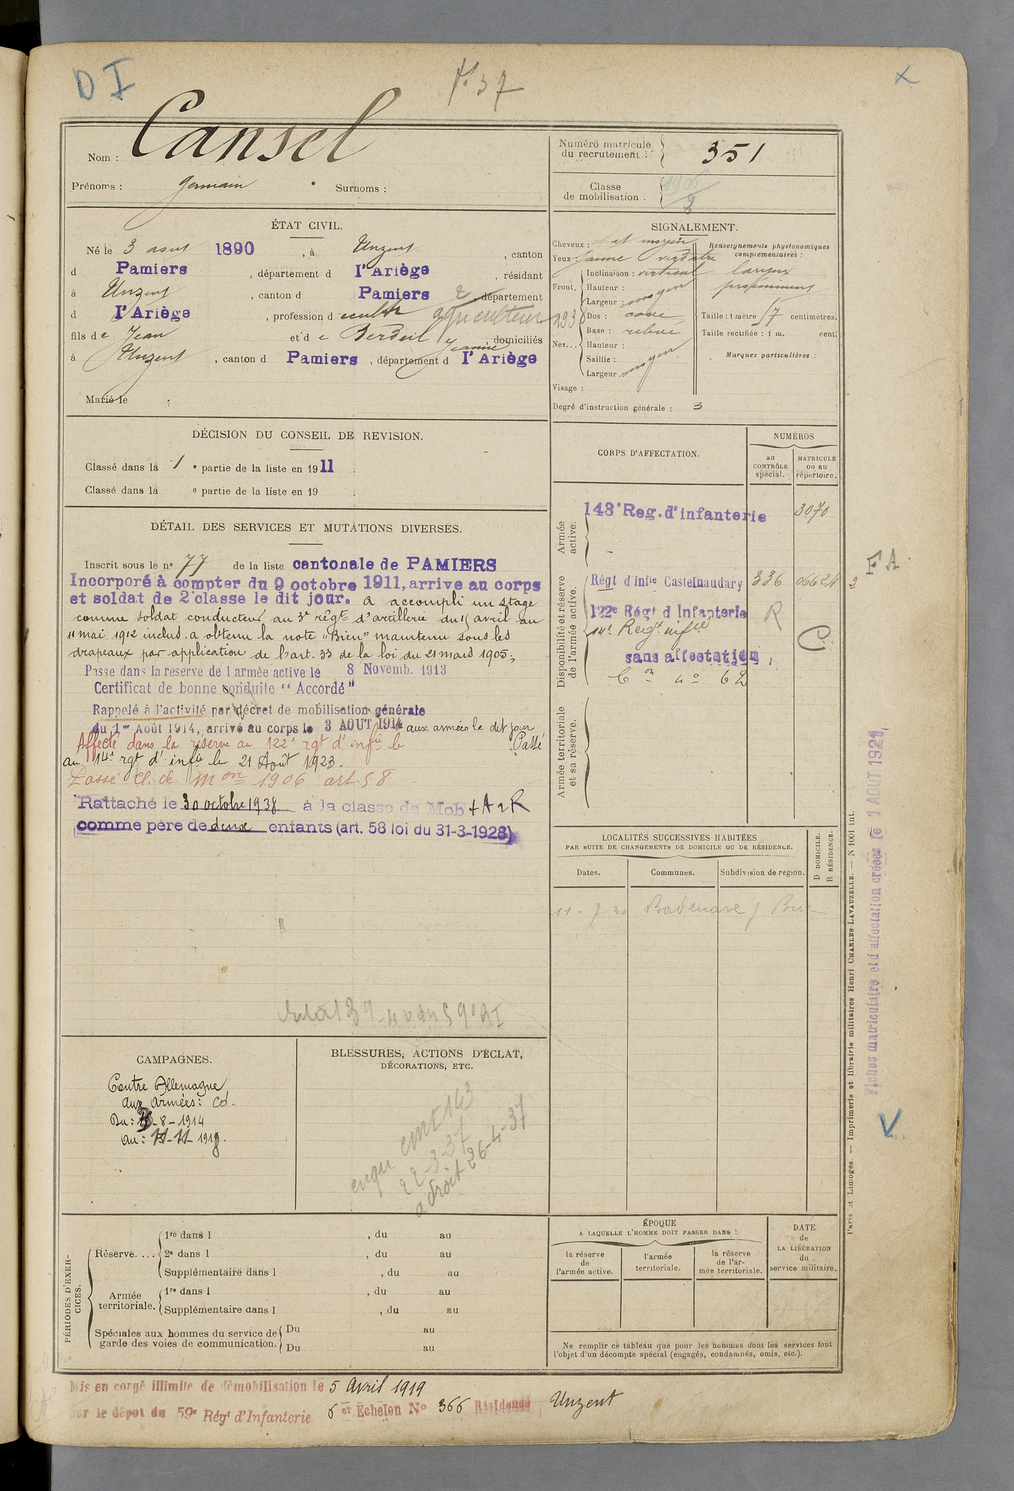 D I
N° 37
Nom : Cansel
Prénoms : Germain Surnoms :
Numéro matricule du recrutement : 351
Classe de mobilisation . 1906
ÉTAT CIVIL.
Né le 3 aout 1890, à Unzent, canton
d Pamiers, département d l'Ariège, résidant
à Unzent, canton d Pamiers, département
d l'Ariège, profession d cultr agriculteur
fils de Jean et de Berdeil Jeanne, domiciliés
à Unzent, canton d Pamiers, département d l'Ariège
Marié le :
SIGNALEMENT.
Cheveux : chat moyen
Yeux : jaune verdatre
Front. Inclinaison : vertical
Hauteur :
Largeur : moyen
Nez... Dos : cave
Base : relevé
Hauteur :
Saillie : moyen
Largeur
Visage :
Renseignements physionomiques complémentaires :
Taille : 1 mètre 57 centimètres.
Taille rectifiée : 1 m. cent.
Marques particulières :
Degré d'instruction générale : 3
DÉCISION DU CONSEIL DE REVISION.
Classé dans la 1 e partie de la liste en 1911
Classé dans la e partie de la liste en 19 .
DÉTAIL DES SERVICES ET MUTATIONS DIVERSES.
Inscrit sous le n° 77 de la liste cantonale de PAMIERS
Incorporé à compter du 9 octobre 1911, arrive au corps
et soldat de 2e classe le dit jour. A accompli un stage
comme soldat conducteur au 3e régt d'artillerie du 15 avril au
11 mai 1912 inclus. a obtenu la note "Bien" maintenu sous les
drapeaux par application de l'art. 33 de la loi du 21 mars 1905;
Passe dans la reserve de l armée active le 8 Novemb. 1913
Certificat de bonne conduite "Accordé"
Rappelé à l'activité par décret de mobilisation générale
du 1er Août 1914, arrivé au corps le 3 AOUT 1914 aux armées le dit jour
Affecté dans la réserve au 122e rgt d'infie le Passé
au 14e rgt d'infie le 21 Août 1923.
Classe de Mon 1906 art 58
Rattaché le 30 octobre 1938 à la classe de Mob
comme père de deux enfants (art. 58 loi du 31-3-1928)
CORPS D'AFFECTATION.
NUMÉROS
au CONTRÔLE spécial.
MATRICULE ou au répertoire.
Armée active.
143e Reg. d'infanterie 3070
Disponibilité et réserve de l'armée active.
Régt d'infie Castelnaudary 336 06624
122e Régt d Infanterie R
14e Régt infie
sans affectation C
Cn n° 62
Armée territoriale et sa réserve.
LOCALITÉS SUCCESSIVES HABITÉES
PAR SUITE DE CHANGEMENTS DE DOMICILE OU DE RÉSIDENCE.
Dates. Communes. Subdivision de région.
D. DOMICILE.
R. RÉSIDENCE.
CAMPAGNES.
Contre Allemagne
aux armées : cd.
Du : 3-8-1914
au : 11-11-1918.
BLESSURES, ACTIONS D'ÉCLAT,
DÉCORATIONS, ETC.
enqu cmt 143
22-3-37
a droit 26-4-37
PÉRIODES D'EXERCICES.
Réserve. ... 1re dans l , du au
2e dans l , du au
Supplémentaire dans l , du au
Armée territoriale. 1re dans l , du au
Supplémentaire dans l , du au
Spéciales aux hommes du service de garde des voies de communication. Du au
Du au
ÉPOQUE
A LAQUELLE L'HOMME DOIT PASSER DANS :
la réserve de l'armée active.
l'armée territoriale.
la réserve de l'armée territoriale.
DATE de LA LIBÉRATION du service militaire.
Ne remplir ce tableau que pour les hommes dont les services font
l'objet d'un décompte spécial (engagés, condamnés, omis, etc.).
Mis en congé illimité de démobilisation le 5 Avril 1919
par le dépôt du 59e Régt d'Infanterie 6er Echelon N° 366 Résidence Unzent
F A
Fiches matriculaire et d'affectation créées le 1 AOUT 1921,
Paris et Limoges. — Imprimerie et librairie militaires Henri CHARLES-LAVAUZELLE. — N 1001 int.
V